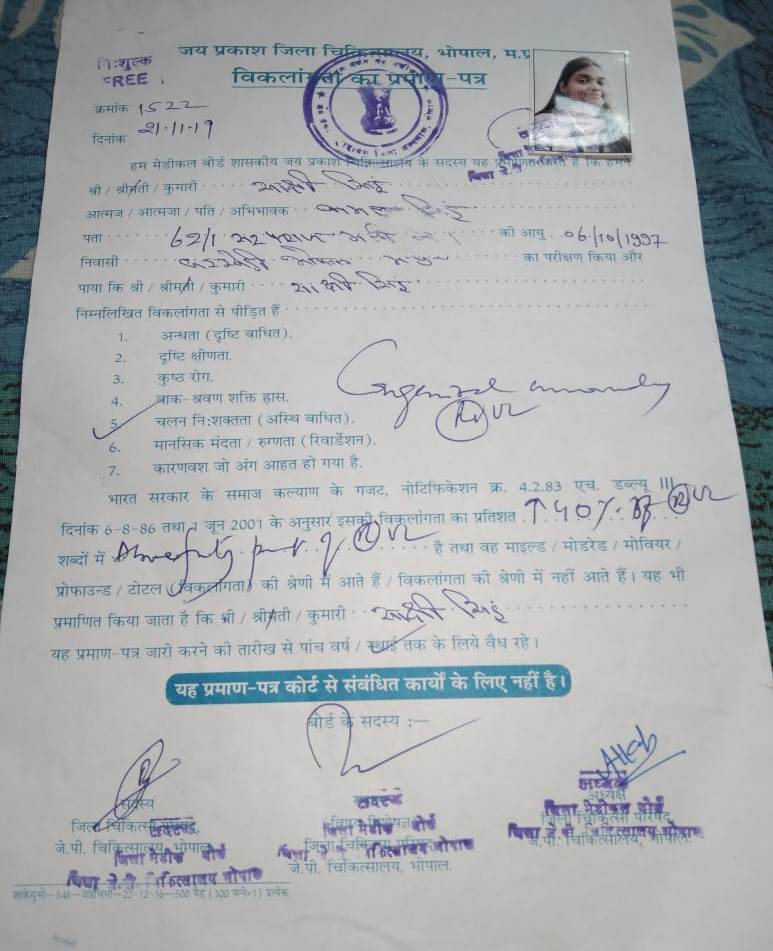 जय प्रकाश जिला चिकित्सालय, भोपाल, म.प्र
नि:शुल्क
FREE
विकलांगता का प्रमाण-पत्र
क्रमांक 1522
दिनांक 21.11.19
हम मेडीकल बोर्ड शासकीय जय प्रकाश चिकित्सालय के सदस्य यह प्रमाणित करते हैं कि हमने
श्री / श्रीमती / कुमारी साक्षी सिंह
आत्मज / आत्मजा / पति / अभिभावक सिंह
पता 62/1 की आयु 06/10/1997
निवासी का परीक्षण किया और
पाया कि श्री / श्रीमती / कुमारी साक्षी सिंह
निम्नलिखित विकलांगता से पीड़ित हैं
1. अन्धता (दृष्टि बाधित).
2. दृष्टि क्षीणता.
3. कुष्ठ रोग.
4. वाक-श्रवण शक्ति हास.
5. चलन नि:शक्तता (अस्थि बाधित).
6. मानसिक मंदता / रुग्णता (रिटार्डेशन).
7. कारणवश जो अंग आहत हो गया है.
Congenital anomaly
भारत सरकार के समाज कल्याण के गजट, नोटिफिकेशन क्र. 4.2.83 एच. डब्ल्यू III
दिनांक 6-8-86 तथा 1 जून 2001 के अनुसार इसकी विकलांगता का प्रतिशत 40%
शब्दों में है तथा वह माइल्ड / मोडरेड / मोवियर /
प्रोफाउन्ड / टोटल (विकलांगता) की श्रेणी में आते हैं / विकलांगता की श्रेणी में नहीं आते हैं। यह भी
प्रमाणित किया जाता है कि श्री / श्रीमती / कुमारी साक्षी सिंह
यह प्रमाण-पत्र जारी करने की तारीख से पांच वर्ष / स्थाई तक के लिये वैध रहे।
यह प्रमाण-पत्र कोर्ट से संबंधित कार्यों के लिए नहीं है।
बोर्ड के सदस्य :—
सदस्य
जे.पी. चिकित्सालय, भोपाल
जिला मेडीकल बोर्ड
सदस्य
जिला मेडीकल बोर्ड
जे.पी. चिकित्सालय, भोपाल.
अध्यक्ष
अध्यक्ष
जिला मेडीकल बोर्ड
जिला चिकित्सा परिषद
जे.पी. चिकित्सालय, भोपाल.